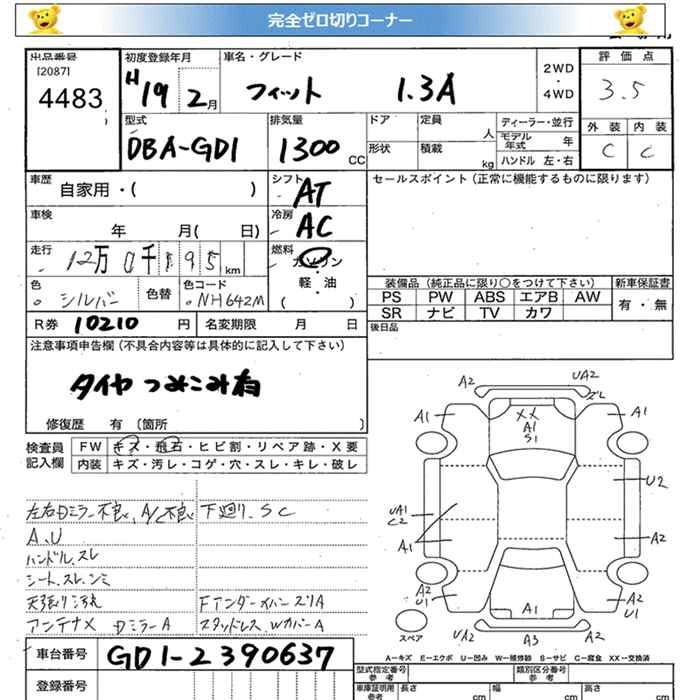 完全ゼロ切りコーナー
出品番号
[2087]
4483
初度登録年月
H19 2月
車名・グレード
フィット 1.3A
2WD
・
4WD
評価点
3.5
型式
DBA-GD1
排気量
1300 CC
ドア 定員 人
形状 積載 kg
ディーラー・並行
モデル年式 年
ハンドル 左・右
外装 内装
C C
車歴 自家用・( )
シフト AT
セールスポイント(正常に機能するものに限ります)
車検 年 月( 日)
冷房 AC
走行 12万0千195km
燃料
ガソリン
・
軽・油
( )
色 シルバー 色替 色コード NH642M
装備品(純正品に限り○をつけて下さい) 新車保証書
PS PW ABS エアB AW 有・無
SR ナビ TV カワ
R券 10210円 名変期限 月 日
後日品
注意事項申告欄(不具合内容等は具体的に記入して下さい)
タイヤつみこみ有
修復歴 有〔箇所 〕
検査員記入欄
FW キズ・飛石・ヒビ割・リペア跡・X要
内装 キズ・汚レ・コゲ・穴・スレ・キレ・破レ
左右Dミラー不良、A/C不良 下廻り、SC
A、U
ハンドル、スレ
シート、スレ、シミ
天張り汚
FアンダーカバーズリA
アンテナX DミラーA
スタッドレス、WカバーA
A2 UA2
ズレ
A1 XX A1
A1
S1
U2
UA1
C2
A1 A2
A2 A2
U1 U1
A1
スペア UA2 A3 UA2
A-キズ E-エクボ U-凹み W-補修跡 S-サビ C-腐食 XX-交換済
車台番号 GD1-2390637
型式指定番号 類別区分番号
登録番号
車庫証明用参考 長さ cm 幅 cm 高さ cm